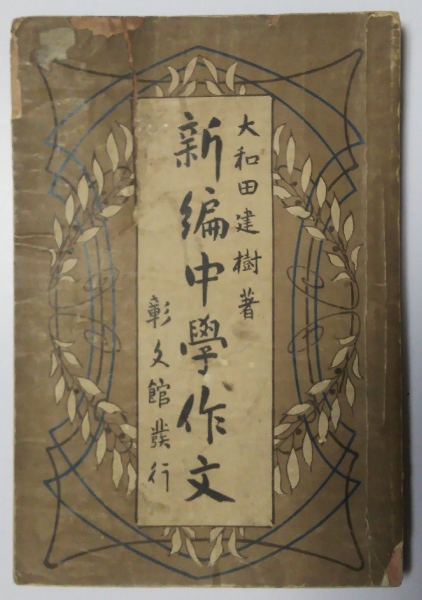 大和田建樹著
新編中學作文
彰文館發行